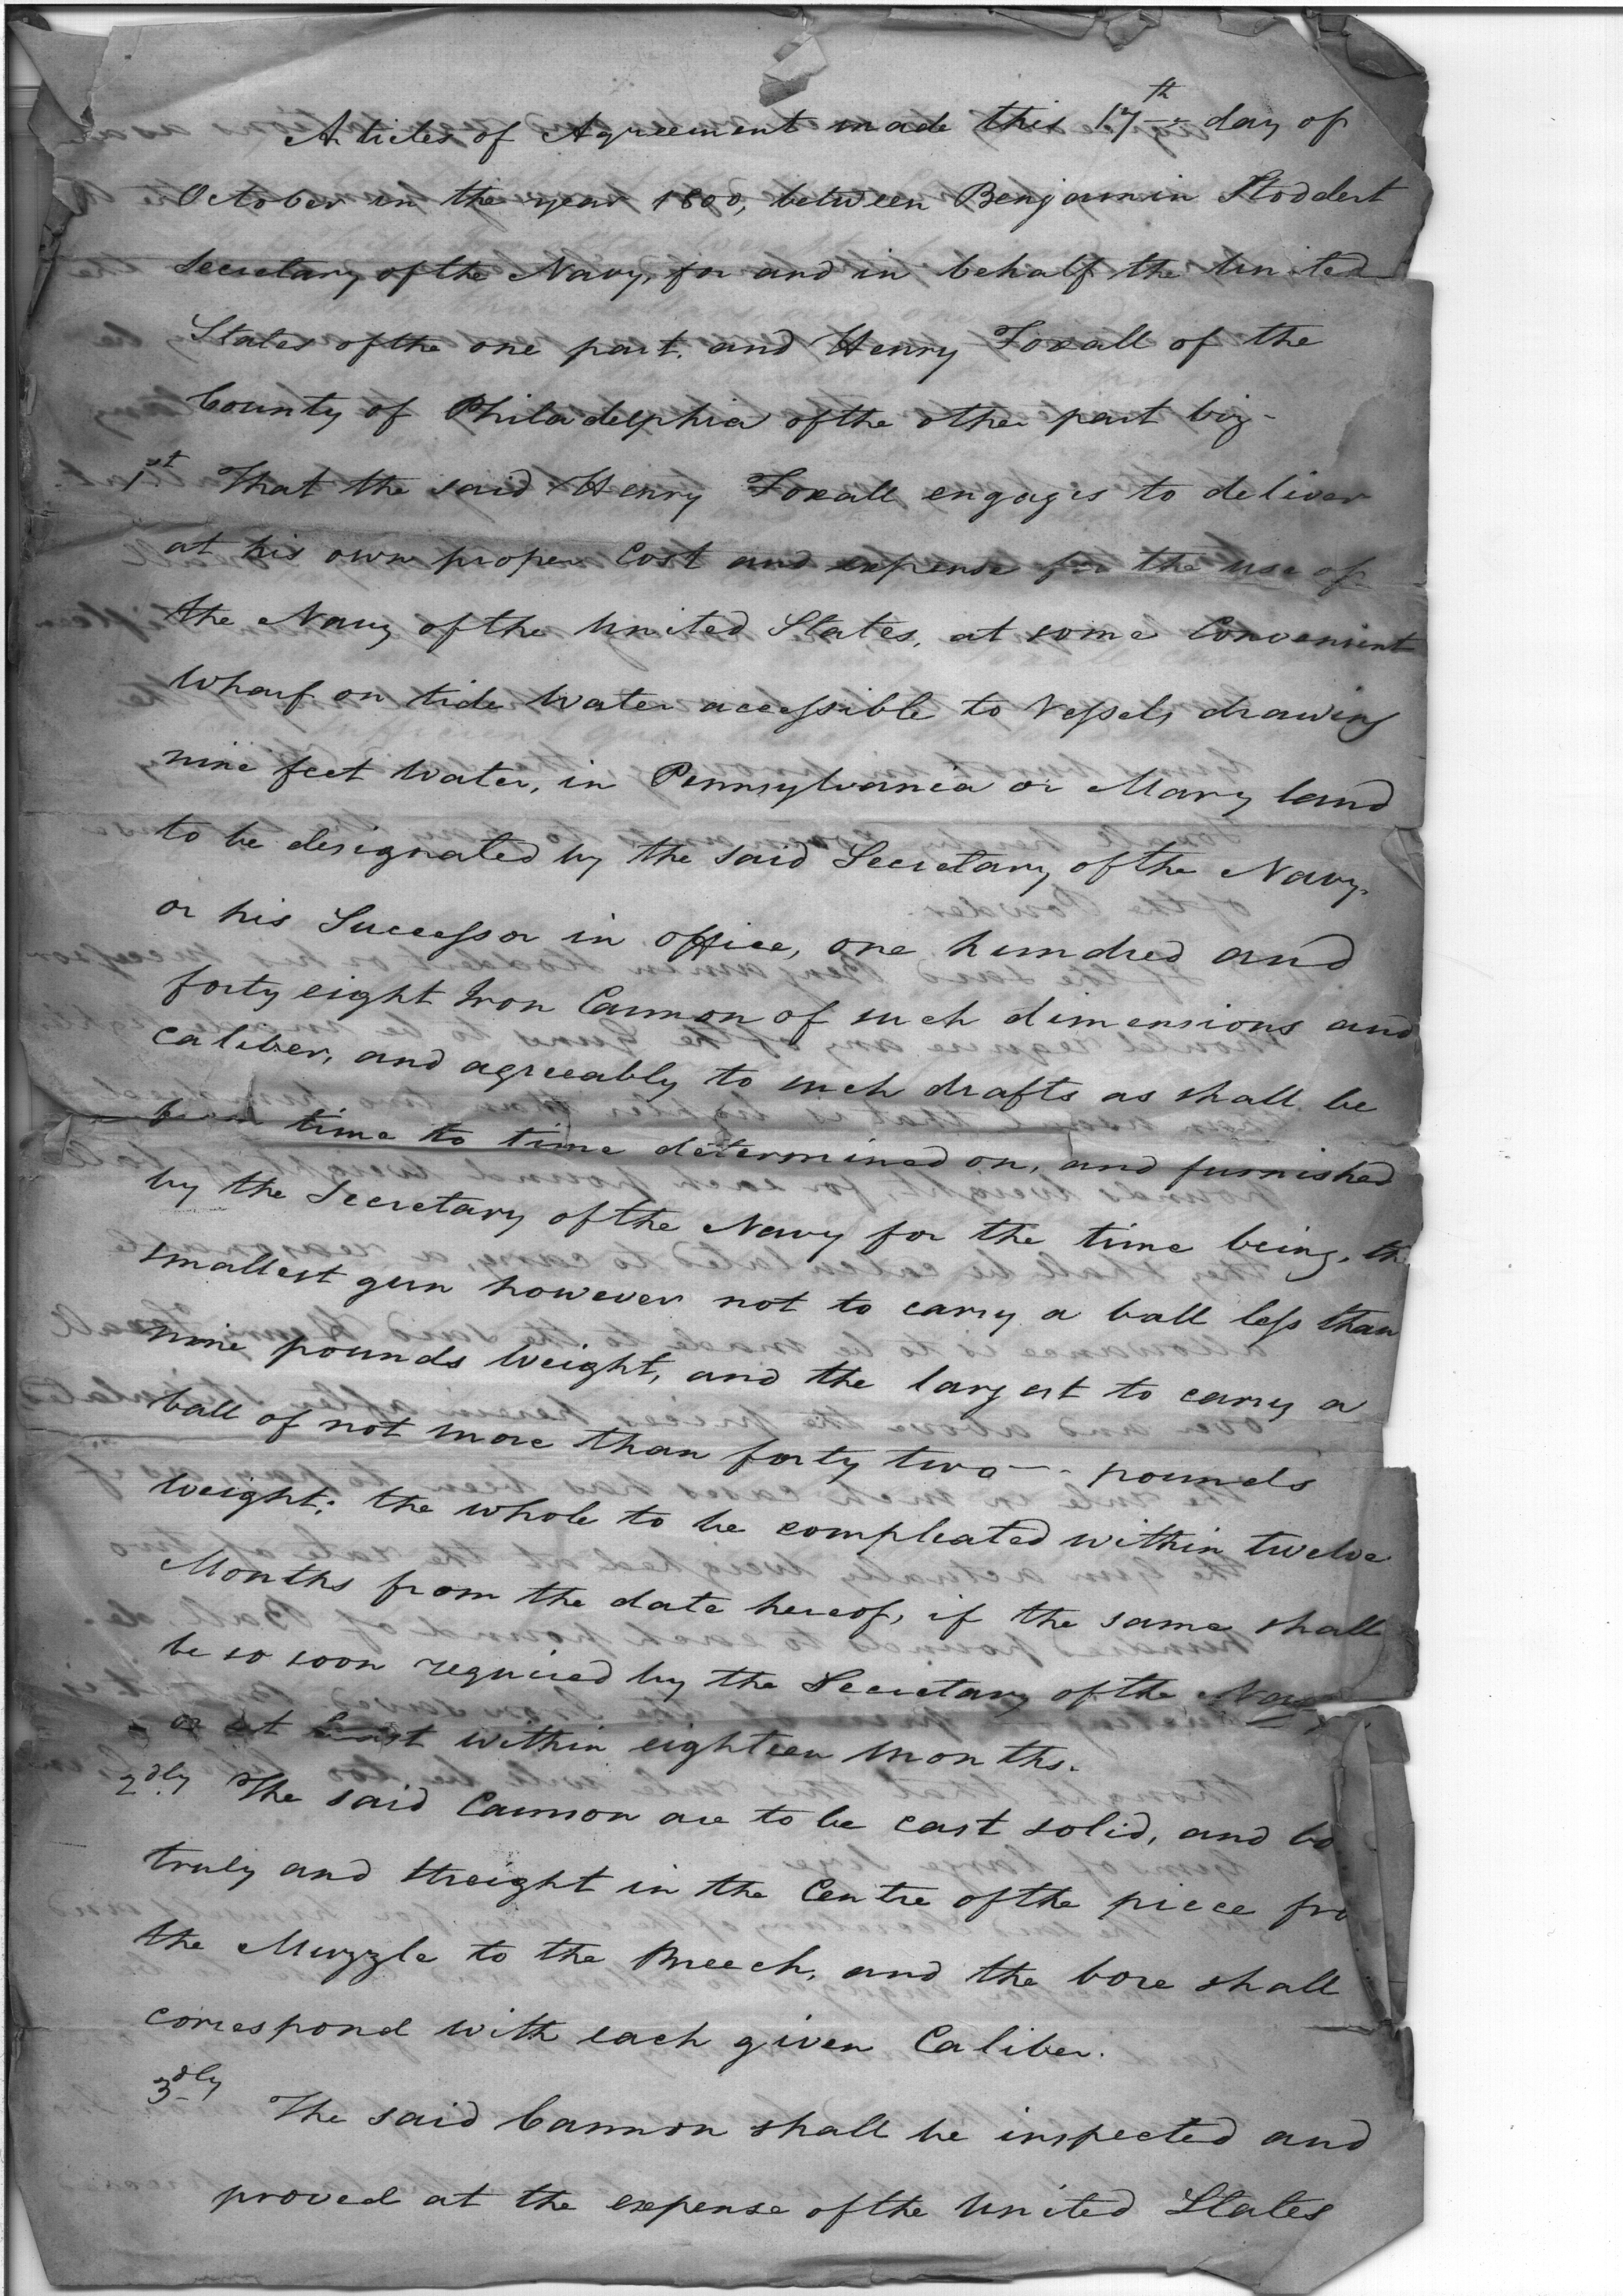 Articles of Agreement made this 17th day of
October in the year 1800, between Benjamin Stoddert
Secretary of the Navy, for and in behalf the United
States of the one part, and Henry Foxall of the
County of Philadelphia of the other part viz-
1st That the said Henry Foxall engages to deliver
at his own proper Cost and expense for the use of
the Navy of the United States, at some Convenient
Wharf on tide Water accessible to Vessels drawing
nine feet Water, in Pennsylvania or Mary land
to be designated by the said Secretary of the Navy,
or his Successor in office, one hundred and
forty eight Iron Cannon of such dimensions and
Caliber, and agreeably to such drafts as shall be
from time to time determined on, and furnished
by the Secretary of the Navy for the time being, the
smallest gun however not to carry a ball less than
nine pounds Weight, and the largest to carry a
ball of not more than forty two -- pounds
Weight: the whole to be compleated within twelve
Months from the date hereof, if the same shall
be so soon required by the Secretary of the Navy
or at least within eighteen Months.
2dly The said Cannon are to be cast solid, and bo
truly and streight in the Centre of the piece fro
the Muzzle to the Breech, and the bore shall
correspond with each given Caliber.
3dly The said Cannon shall be inspected and
proved at the expense of the United States